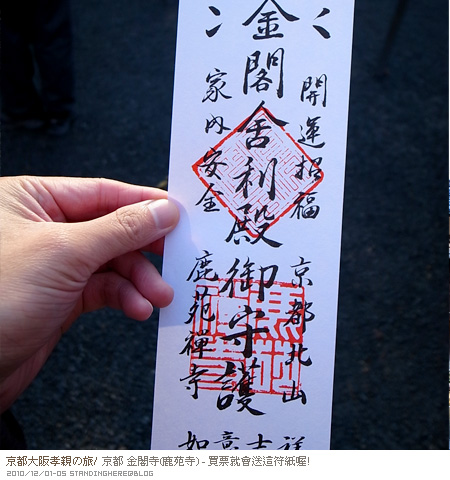 金閣舍利殿御守護
開運招福
家内安全
京都北山
鹿苑禪寺
如意吉祥
京都大阪孝親の旅/ 京都 金閣寺(鹿苑寺) - 買票就會送這符紙喔!
2010/12/01-05 STANDINGHERE@BLOG